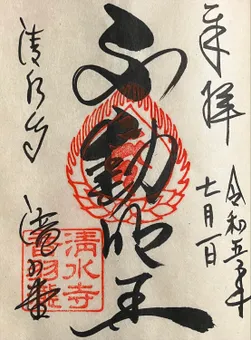 奉拝
令和五年
七月一日
不動明王
清水寺
清水寺
音羽瀧